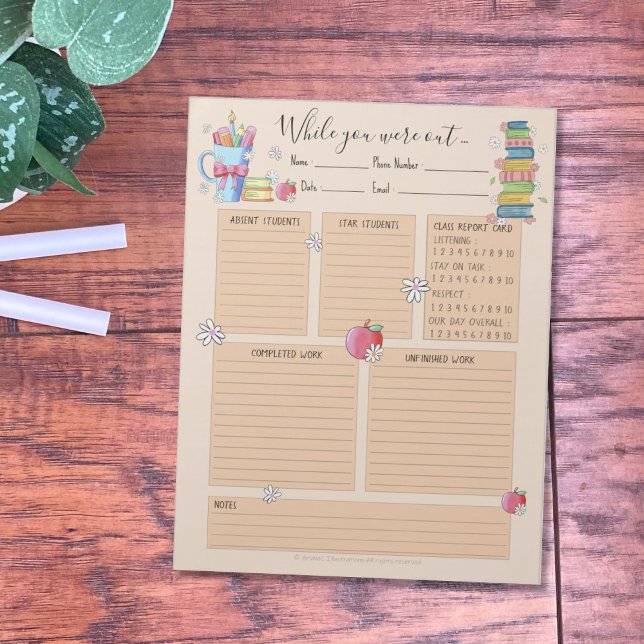 While you were out ...
Name : Phone Number :
Date : Email :
ABSENT STUDENTS
STAR STUDENTS
CLASS REPORT CARD
LISTENING :
1 2 3 4 5 6 7 8 9 10
STAY ON TASK :
1 2 3 4 5 6 7 8 9 10
RESPECT :
1 2 3 4 5 6 7 8 9 10
OUR DAY OVERALL :
1 2 3 4 5 6 7 8 9 10
COMPLETED WORK
UNFINISHED WORK
NOTES
Illustrations All rights reserved